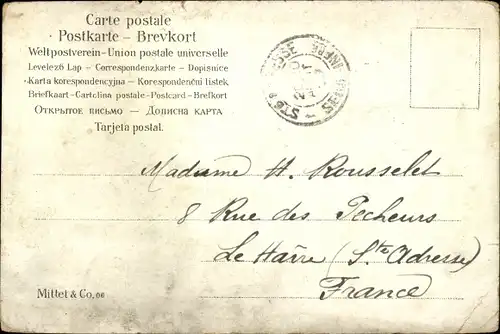 Carte postale
· Postkarte – Brevkort
Weltpostverein – Union postale universelle
Levelező Lap – Correspondenzkarte – Dopisnice
·Karta korespondencyjna – Korespondenční lístek
Briefkaart – Cartolina postale – Postcard – Brefkort
Открытое письмо — Дописна карта
Tarjeta postal.
Madame H. Rousselet
8 Rue des Pecheurs
Le Havre (Ste Adresse)
France
Mittet & Co. 66